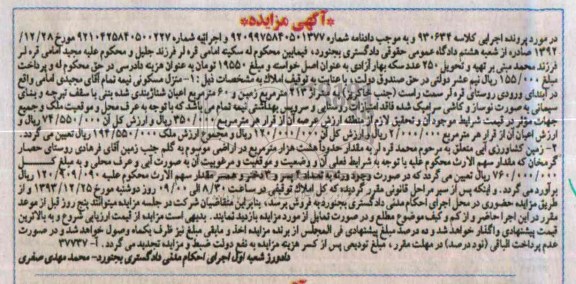 *آگهی مزایده*
در مورد پرونده اجرایی کلاسه ۹۳۰۶۳۴ و به موجب دادنامه شماره ۹۲۰۹۹۷۵۸۴۰۵۰۱۳۷۷ و اجرائیه شماره ۹۲۱۰۴۲۵۸۴۰۵۰۰۲۲۷ مورخ ۱۲/۲۸/
۱۳۹۲ صادره از شعبه هشتم دادگاه عمومی حقوقی دادگستری بجنورد، فیمابین محکوم له سکینه امامی قره لر فرزند جلیل و محکوم علیه مجید امامی قره لر
فرزند محمد مبنی بر تهیه و تحویل ۲۵۰ عدد سکه بهار آزادی به عنوان اصل خواسته و مبلغ ۱۹۵۵۰ تومان به عنوان هزینه دادرسی در حق محکوم له و پرداخت
مبلغ ۱۵۵/۰۰۰ ریال نیم عشر دولتی در حق صندوق دولت، با عنایت به توقیف املاک به مشخصات ذیل: ۱- منزل مسکونی نیمه تمام آقای مجیدی امامی واقع
در ابتدای ورودی روستای قره لر سمت راست (جنب ۲۱۳ مترمربع زمین و ۶۰ مترمربع اعیان شناژبندی شده بتنی با سقف تیرچه و بنای
سیمانی به صورت نوساز و کاشی سرامیک شده فاقد امتیازات روستایی و سرویس بهداشتی نیمه تمام می باشد که با توجه به عرف محل و موقعیت ملک و جمیع
جهات مؤثر در قیمت شرایط موجود آن و تحقیق لازم از منطقه ارزش عرصه آن از قرار هر مترمربع ۳۵۰/۰۰۰ ریال و ارزش کل آن ۷۴/۵۵۰/۰۰۰ ریال و
ارزش اعیان آن از قرار هر مترمربع ۲/۰۰۰/۰۰۰ ریال و ارزش کل آن ۱۲۰/۰۰۰/۰۰۰ ریال و مجموع ارزش ملک ۱۹۴/۵۵۰/۰۰۰ ریال تعیین می گردد.
۲- زمین کشاورزی آبی متعلق به مرحوم محمد قره لر به مقدار حدوداً هشت هزار مترمربع در اراضی موسوم به گلم جنب زمین آقای فرهادی روستای حصار
گرمخان که مقدار سهم الارث محکوم علیه با توجه به شرایط فعلی آن و وضعیت و موقعیت و مرغوبیت آن به صورت آبی و عرف محلی و به مبلغ کل
۷۶۰/۰۰۰/۰۰۰ ریال تعیین می گردد که در صورت وجود ورثه به تعداد پسر و دختر و همسر مقدار سهم الارث محکوم علیه ۱۲۰/۹۰۹/۰۹۰ ریال
برآورد می گردد. و اینکه پس از سیر مراحل قانونی مقرر گردیده که کل املاک توقیفی در ساعت ۸/۳۰ الی ۰۹/۰۰ روز دوشنبه مورخ ۱۳۹۳/۱۲/۲۵ و از
طریق مزایده حضوری در محل اجرای احکام مدنی دادگستری بجنورد به فروش برسد، بنابراین متقاضیان شرکت در جلسه مزایده میتوانند پنج روز قبل از موعد
مقرر در این اجرا حاضر و از کم و کیف موضوع مطلع و در صورت تمایل از مورد مزایده بازدید نمایند. بدیهی است مزایده از قیمت ارزیابی شروع و به بالاترین
قیمت پیشنهادی واگذار خواهد شد و ده درصد مبلغ پیشنهادی فی المجلس از برنده مزایده اخذ و مابقی مبلغ نیز ظرف یکماه وصول خواهد شد و در صورت
عدم پرداخت الباقی (نود درصد) در مهلت مقرر، مبلغ تودیعی پس از کسر هزینه مزایده به نفع دولت ضبط و مزایده تجدید می گردد. آ- ۳۷۷۳۷
دادورز شعبه اول اجرای احکام مدنی دادگستری بجنورد- محمد مهدی صفری